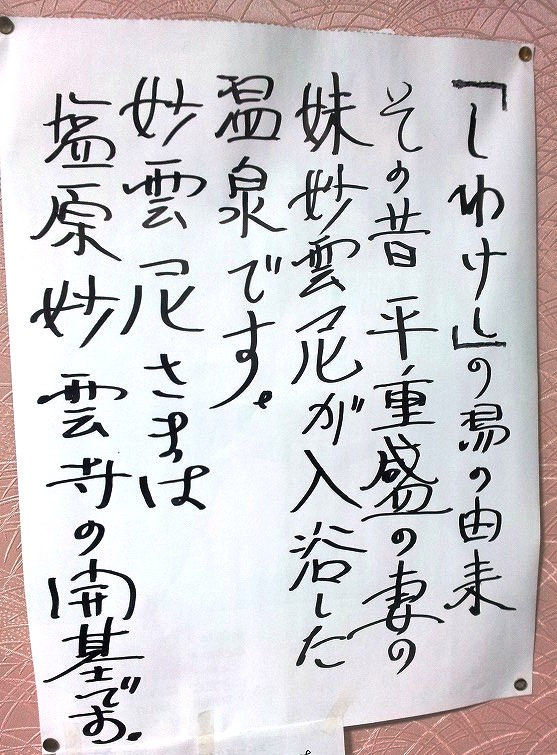 「しわけ」の湯の由来
その昔 平重盛の妻の
妹妙雲尼が入浴した
温泉です。
妙雲尼さまは
塩原妙雲寺の開基です。